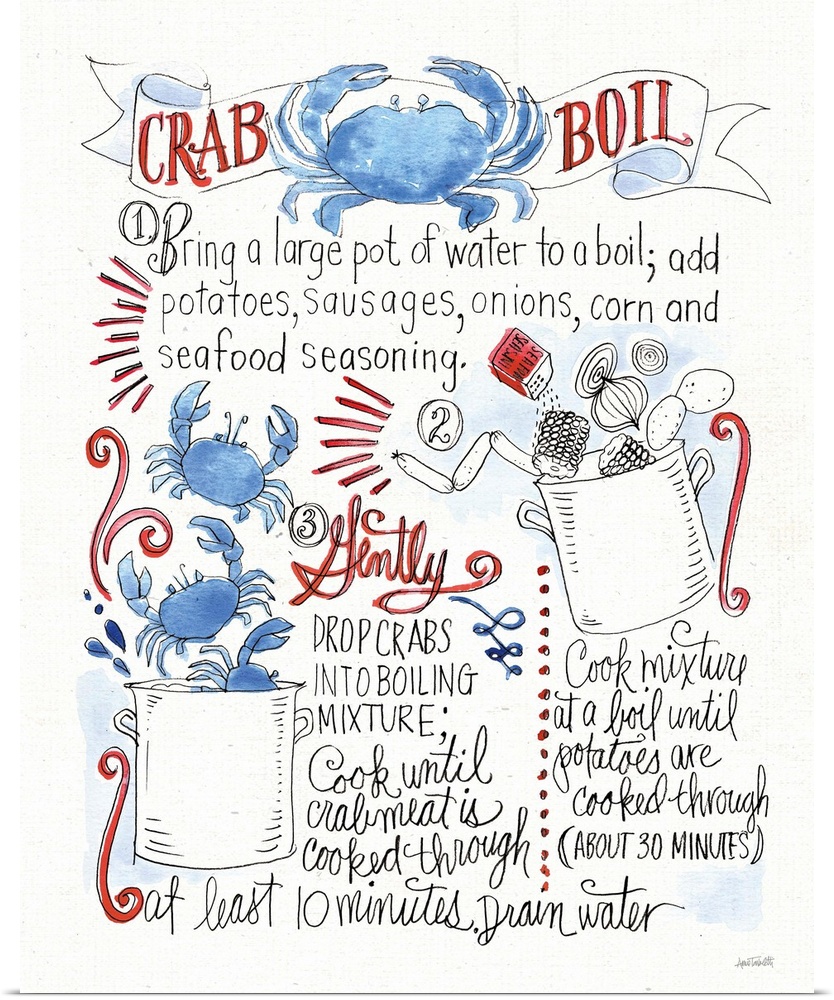 CRAB BOIL
1. Bring a large pot of water to a boil; add
potatoes, sausages, onions, corn and
seafood seasoning.
2
Cook mixture
at a boil until
potatoes are
cooked through
(ABOUT 30 MINUTES)
3 Gently
DROP CRABS
INTO BOILING
MIXTURE;
Cook until
crabmeat is
cooked through
at least 10 minutes. Drain water